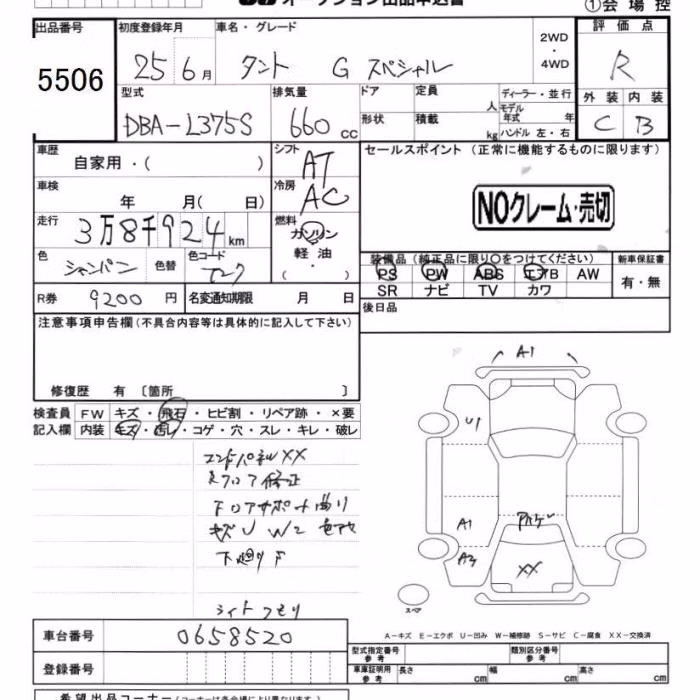 オークション出品申込書
①会場控
出品番号 初度登録年月 車名・グレード 2WD・4WD 評価点
5506 25 6月 タント G スペシャル R
型式 排気量 ドア 定員 人 ディーラー・並行 外装 内装
DBA-L375S 660cc 形状 積載 kg モデル年式 年 ハンドル 左・右 C B
車歴 自家用・( ) シフト AT セールスポイント (正常に機能するものに限ります)
車検 年 月( 日) 冷房 AC NOクレーム・売切
走行 3万8千924km 燃料 ガソリン・軽油・( )
色 シャンパン 色替 色コード
装備品 (純正品に限り○をつけてください) 新車保証書
PS PW ABS エアB AW 有・無
SR ナビ TV カワ
R券 9200円 名変通知期限 月 日 後日品
注意事項申告欄(不具合内容等は具体的に記入して下さい)
修復歴 有 〔箇所 〕
検査員 FW キズ・飛石・ヒビ割・リペア跡・×要
記入欄 内装 キズ・汚レ・コゲ・穴・スレ・キレ・破レ
エンドパネルXX
キズ U W2 色アセ
下廻りF
ライトクモリ
A1
U1
A1
A3
XX
スペア
A-キズ E-エクボ U-凹み W-補修跡 S-サビ C-腐食 XX-交換済
車台番号 0658520
型式指定番号 参考 類別区分番号 参考
登録番号
車庫証明用 参考 長さ cm 幅 cm 高さ cm
希望出品コーナー(コーナーは各会場により異なります)